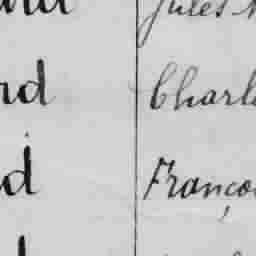 Jules
rd Charl
d Franço